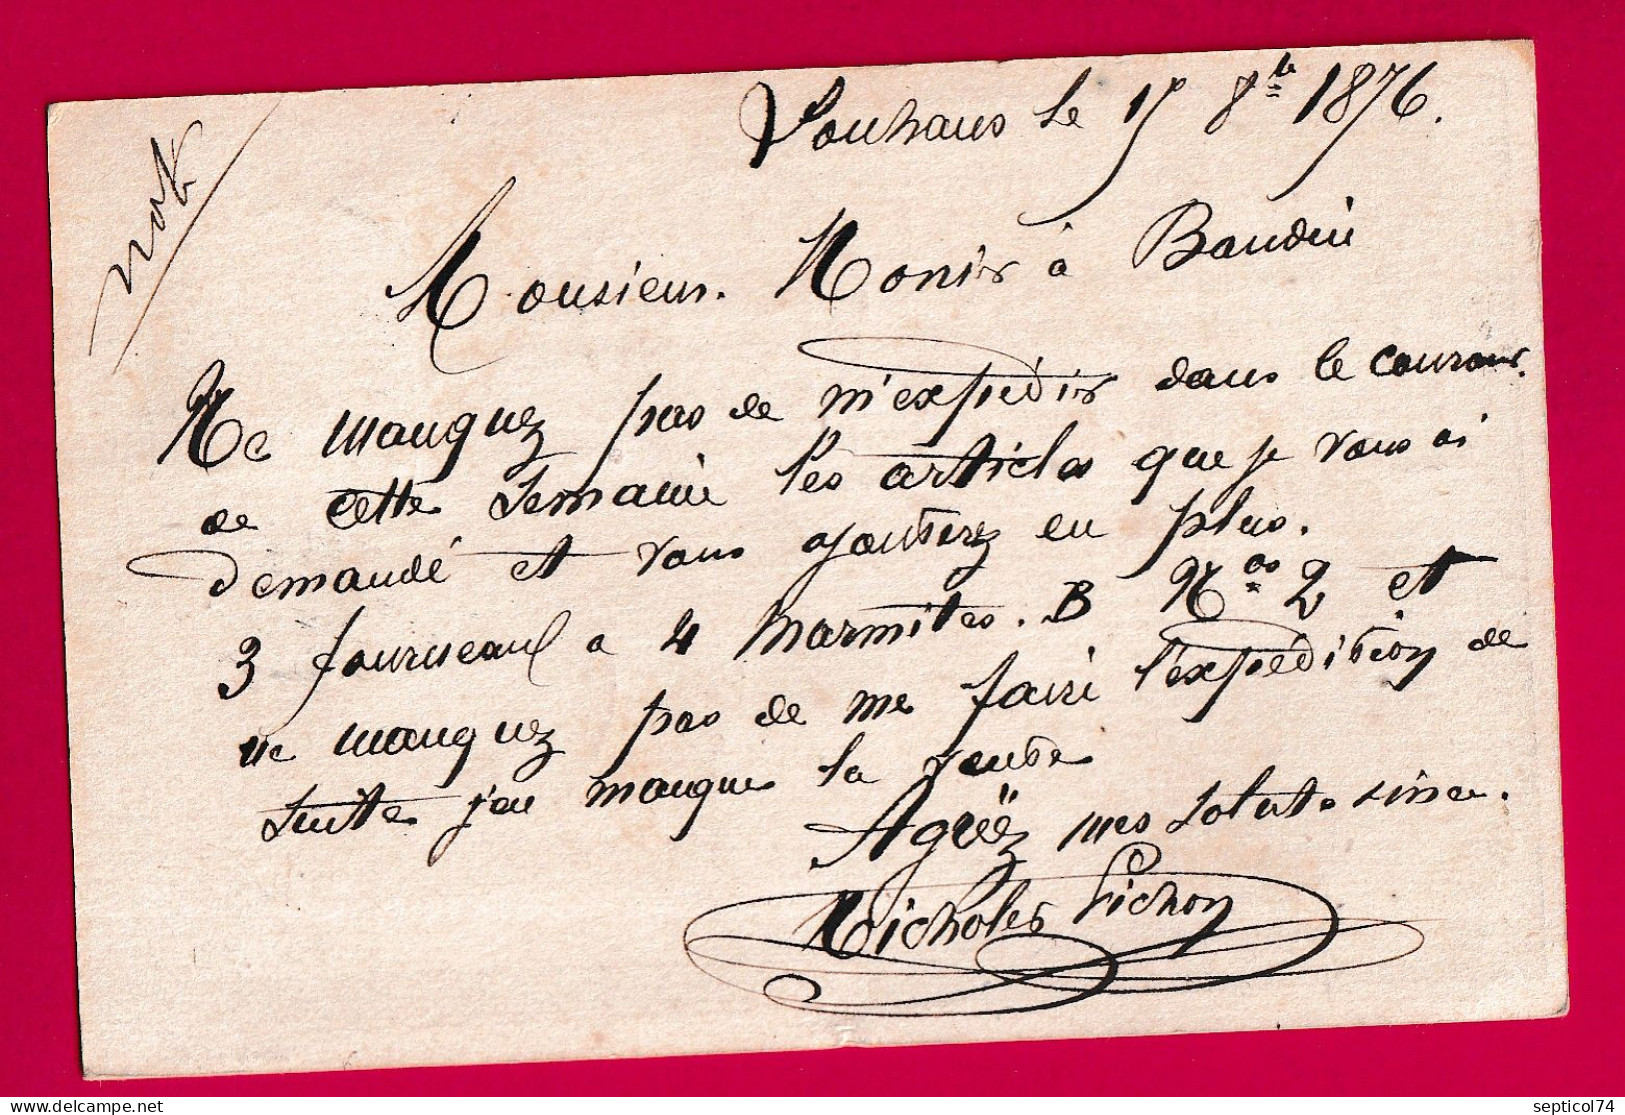 Louhans le 15 8bre 1876.
noté
Monsieur. Monier à Baudin
Ne manquez pas de m'expédier dans le courant.
de cette semaine les articles que je vous ai
demandé et vous ajouterez en plus.
3 fourneau a 4 Marmites. B Nos 2 et
ne manquez pas de me faire l'expédition de
suite j'en manque la vente
Agréëz mes Salut. sincer.
Nicholes Pichon
www.delcampe.net
septicol74